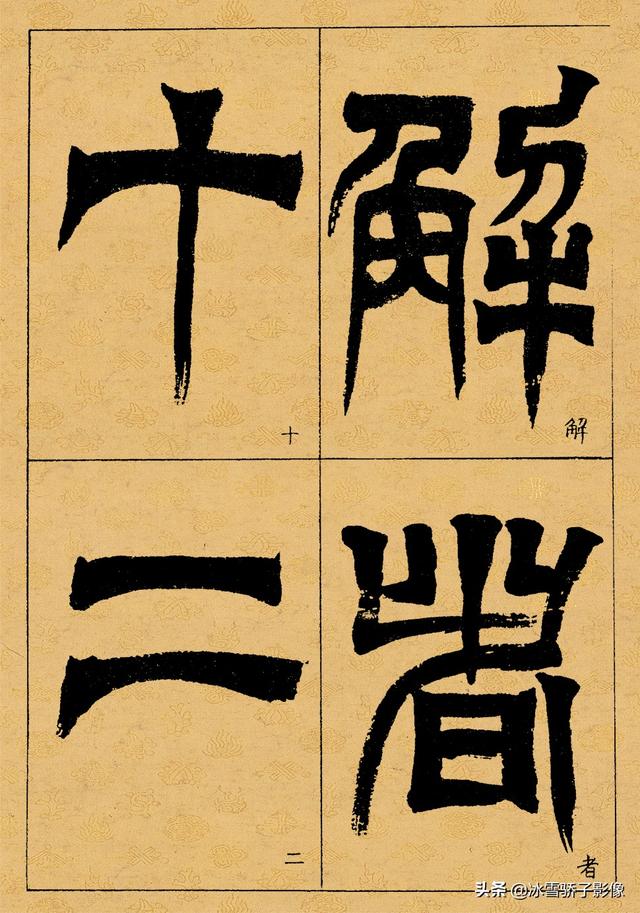 解
解
者
者
十
十
二
二
头条 @冰雪骄子影像